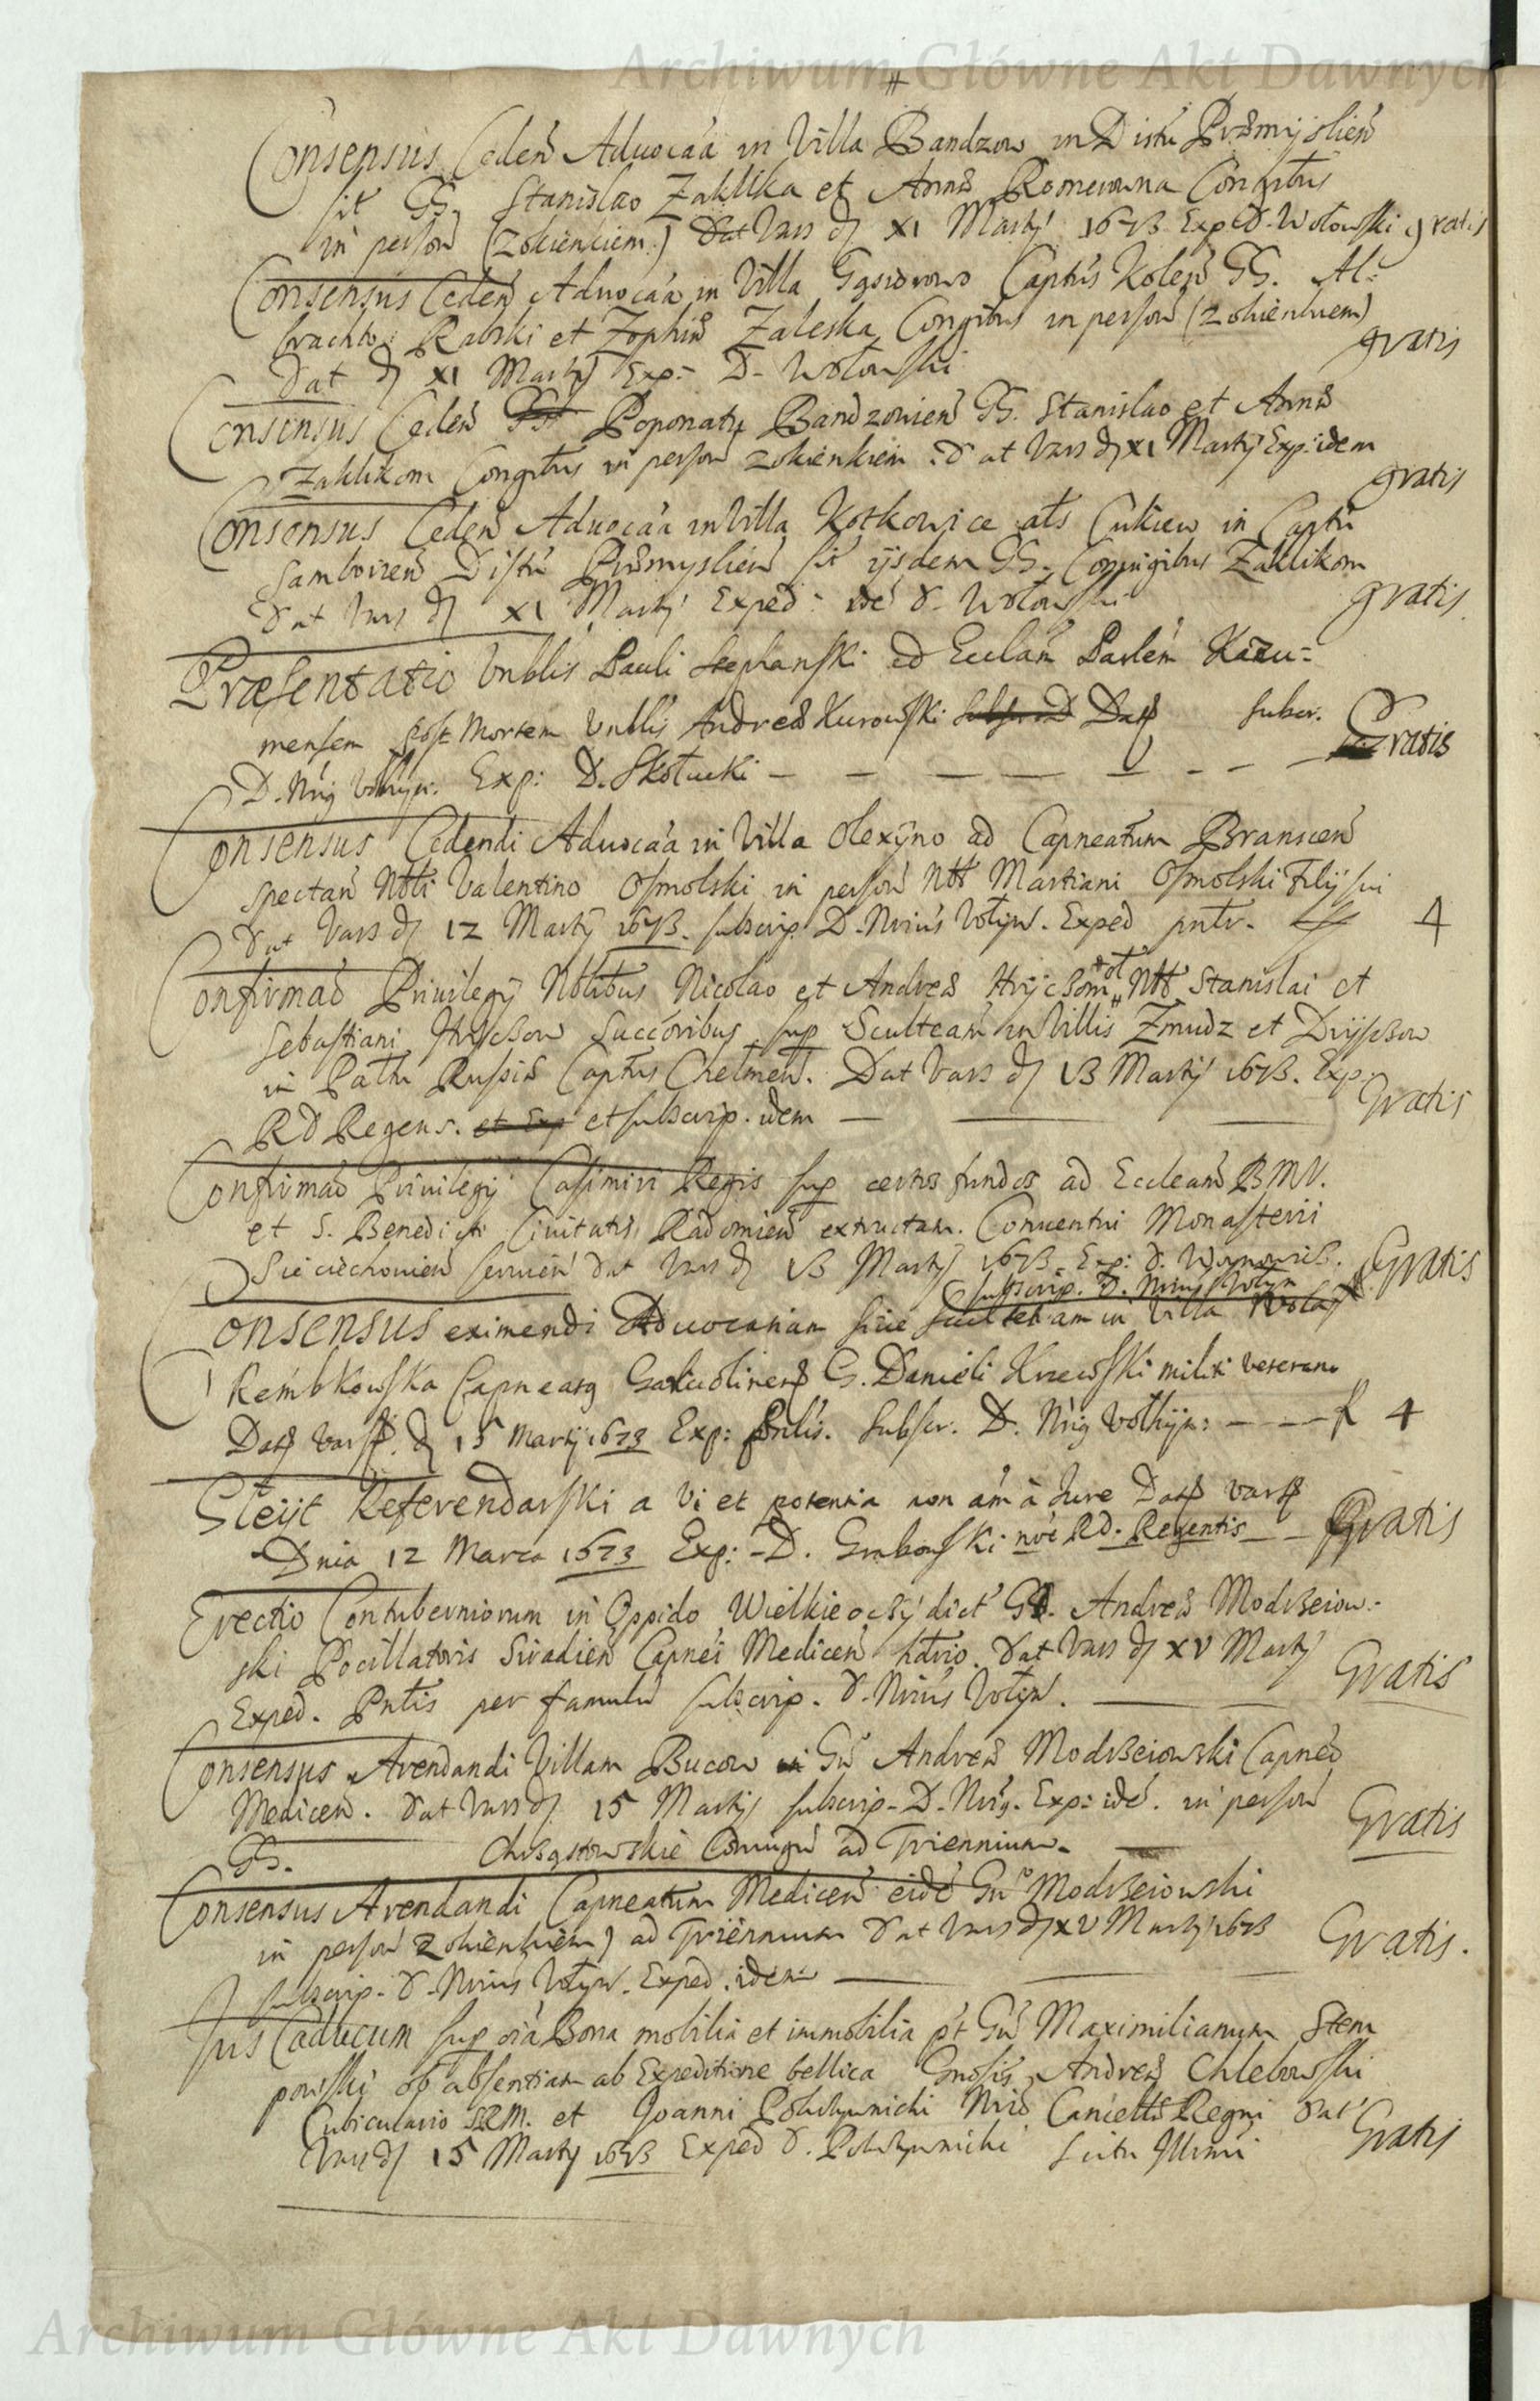 Archiwum Główne Akt Dawnych
#
Consensus Cedeñ Aduocãa in Villa Bandzow in Distũ Prẽmyslieñ
sit GG. Stanislao Zaklika et Annæ Romerowna Coniũgibus
in persoñ (z okienkiem) Dat Vars d XI Martij 1673 Exped D. Wołowski gratis
Consensus Cedeñ Aduocãa in Villa Gąsiorowo Captũs Koleñ GG. Al=
brachto Rabski et Zophiæ Zaleska Congibus in persoñ (z okienkiem)
Dat d XI Martij Exp= D- Wołowski gratis
Consensus Cedeñ Poponatũ Bandzowieñ GG. Stanislao et Annæ
Zaklikom Congibus in persoñ z okienkiem. Dat Vars d XI Martij Exp: idem gratis
Consensus Cedeñ Aduocãa in Villa Kotkowice als Cukiew in Captũ
Samborieñ Distũ Prẽmyslieñ sit ijsdem GG. Coniugibus Zaklikom
Dat Vars d XI Martij Exped: idẽ D. Wołowski gratis
Præsentatio Vnblis Pauli Stephanski ad Ecclãm Parlẽm Kazu=
mensem post Mortem Vnblis Andreæ Kurowski Dat subscr.
D. Nrĩg Vołhyn: Exp: D. Skołucki — — — — Gratis
Consensus Cedendi Aduocãa in Villa Olexyno ad Capneatum Bransceñ
spectañ Nbli Valentino Osmolski in persoñ Nbl Martiani Osmolski Filij sui
Dat Vars d 12 Martij 1673. subscrip D. Nriũs Vołyn. Exped pntr. 4
Confirmaõ Priuilegij Nblibus Nicolao et Andreæ Hryczom, Nbl Stanislai et
Sebastiani Hryczow Succõribus sup Scultetiam in Villis Zmudz et Dryszczow
in Palũ Russiæ Captũs Chełmeñ. Dat Vars d 13 Martij 1673. Exp.
RD Regens. et Exp et subscrip. idem — — — Gratis
Confirmaõ Priuilegij Casimiri Regis sup certos fundos ad Ecclesiam BMV.
et S. Benedicti Ciuitatis Radomieñ extructam. Conuentui Monasterii
Sieciechouieñ seruieñ Dat Vars d 13 Martij 1673. Exp: D. Woynowicz. Gratis
subscrip. D. Nriũs Vołyn
Consensus eximendi Aduocatiam siue scultetiam in Villa Wola
Rembkowska Capneatg Garwolineñ G. Danieli Krzewski militi veterano
Dat Vars. d 15 Martij 1673 Exp: pñtis. Subscr. D. Nrĩg Vołhyn: — — — f 4
Gleyt Referendarski a vi et potentia non aũm à Jure Dat Vars
Dnia 12 Marca 1673 Exp: - D. Grabowski nõe RD. Regentis — — Gratis
Erectio Contuberniorum in Oppido Wielkieoczy dict GD. Andreæ Modrzeiow-
ski Pocillatoris Siradieñ Capnei Mediceñ hdrio. Dat Vars d XV Martij
Exped. Pntis per famulũ subscrip. D. Nriũs Vołyn. — — Gratis
Consensus Arendandi Villam Bucow Gũ Andreæ Modrzeiowski Capneõ
Mediceñ. Dat Vars d 15 Martij subscrip. D. Nrĩg. Exp: idẽ. in persoñ
GG. Chrząstowskie Coniugũ ad Triennium. — Gratis
Consensus Arendandi Capneatum Mediceñ eidẽ Gũo Modrzeiowski
in persoñ z okienkiem) ad Triennium Dat Vars d XV Martij 1673 Gratis.
subscrip. D. Nriũs Vołyn. Exped. idem — — —
Jus Caducum sup oĩa Bona mobilia et immobilia pt Gũ Maximilianum Stem
powski ob absentiam ab Expeditione bellica Gnosis Andreæ Chlebowski
Cubiculario SRM. et Joanni Nriõ Cancells Regni Dat
Vars d 15 Martij 1673 Exped D. Scitu Illmi Gratis
Archiwum Główne Akt Dawnych